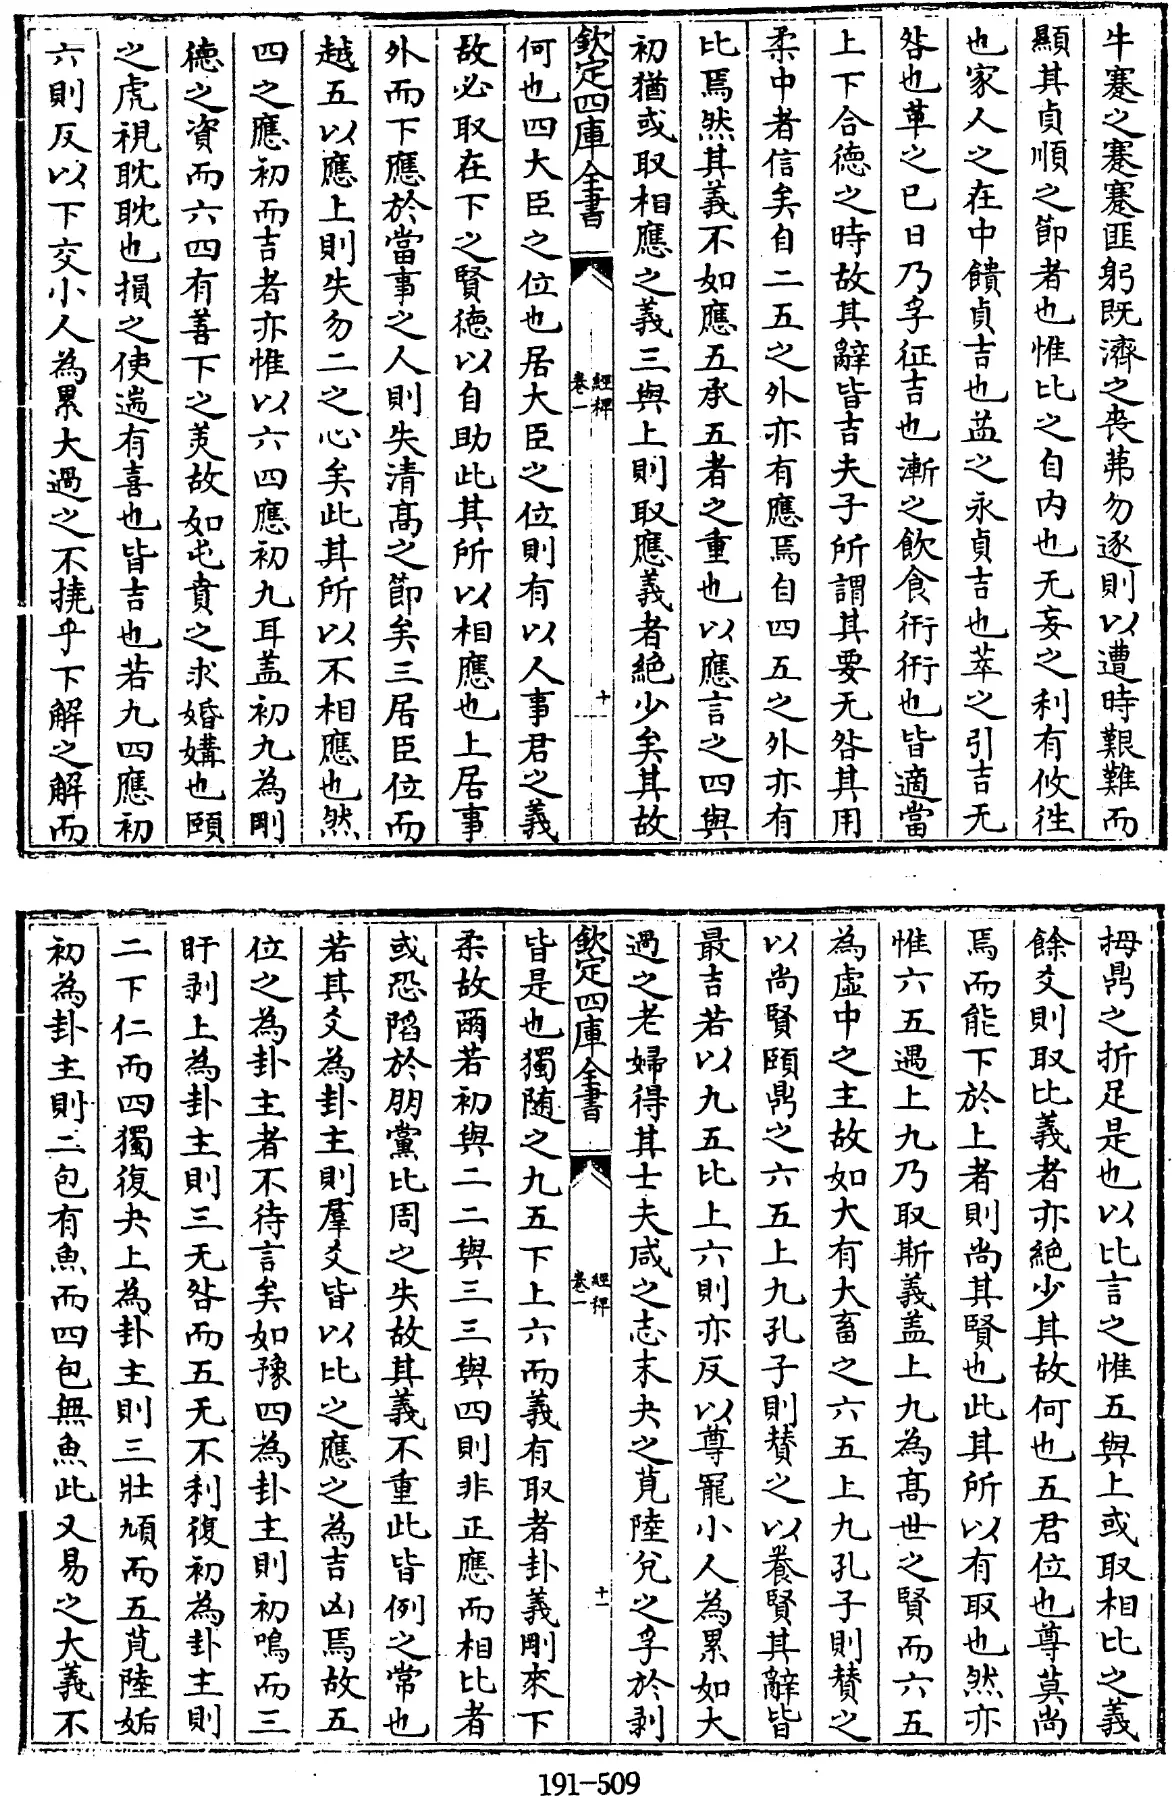 牛蹇之蹇蹇匪躬既濟之喪茀勿逐則以遭時艱難而
顯其貞順之節者也惟比之自内也无妄之利有攸往
也家人之在中饋貞吉也益之永貞吉也萃之引吉无
咎也革之已日乃孚征吉也漸之飲食衎衎也皆適當
上下合德之時故其辭皆吉夫子所謂其要无咎其用
柔中者信矣自二五之外亦有應焉自四五之外亦有
比焉然其義不如應五承五者之重也以應言之四與
初猶或取相應之義三與上則取應義者絶少矣其故
欽定四庫全書
經稗
卷一
十
何也四大臣之位也居大臣之位則有以人事君之義
故必取在下之賢德以自助此其所以相應也上居事
外而下應於當事之人則失清髙之節矣三居臣位而
越五以應上則失勿二之心矣此其所以不相應也然
四之應初而吉者亦惟以六四應初九耳盖初九為剛
德之資而六四有善下之美故如屯賁之求婚媾也頤
之虎視耽耽也損之使遄有喜也皆吉也若九四應初
六則反以下交小人為累大過之不撓乎下解之解而
拇鼎之折足是也以比言之惟五與上或取相比之義
餘爻則取比義者亦絶少其故何也五君位也尊莫尚
焉而能下於上者則尚其賢也此其所以有取也然亦
惟六五遇上九乃取斯義盖上九為髙世之賢而六五
為虛中之主故如大有大畜之六五上九孔子則賛之
以尚賢頤鼎之六五上九孔子則賛之以養賢其辭皆
最吉若以九五比上六則亦反以尊寵小人為累如大
過之老婦得其士夫咸之志末夬之莧陸兌之孚於剥
欽定四庫全書
經稗
卷一
十一
皆是也獨隨之九五下上六而義有取者卦義剛來下
柔故爾若初與二二與三三與四則非正應而相比者
或恐陷於朋黨比周之失故其義不重此皆例之常也
若其爻為卦主則羣爻皆以比之應之為吉凶焉故五
位之為卦主者不待言矣如豫四為卦主則初鳴而三
盱剥上為卦主則三无咎而五无不利復初為卦主則
二下仁而四獨復夬上為卦主則三壯頄而五莧陸姤
初為卦主則二包有魚而四包無魚此又易之大義不
191-509